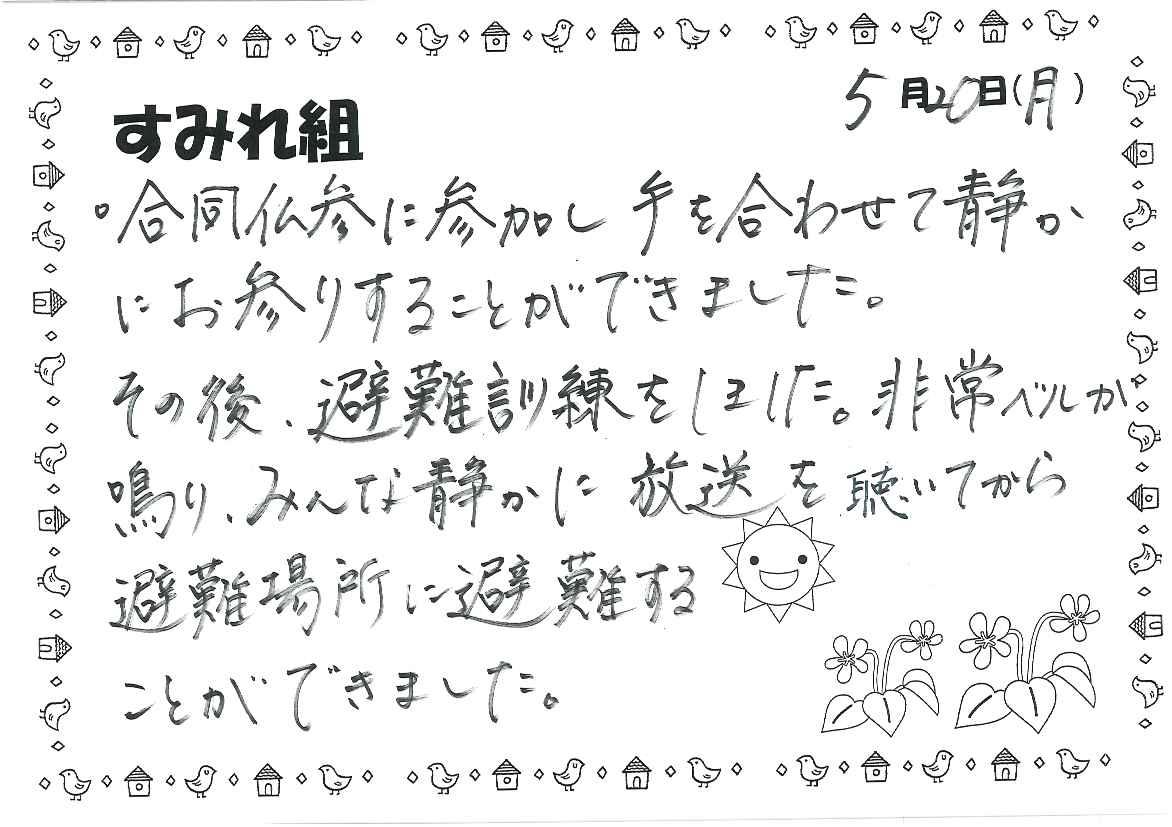 5月20日(月)
すみれ組
。合同仏参に参加し 手を合わせて静か
にお参りすることができました。
その後、避難訓練をしました。非常ベルが
鳴り、みんな静かに放送を聴いてから
避難場所に避難する
ことができました。